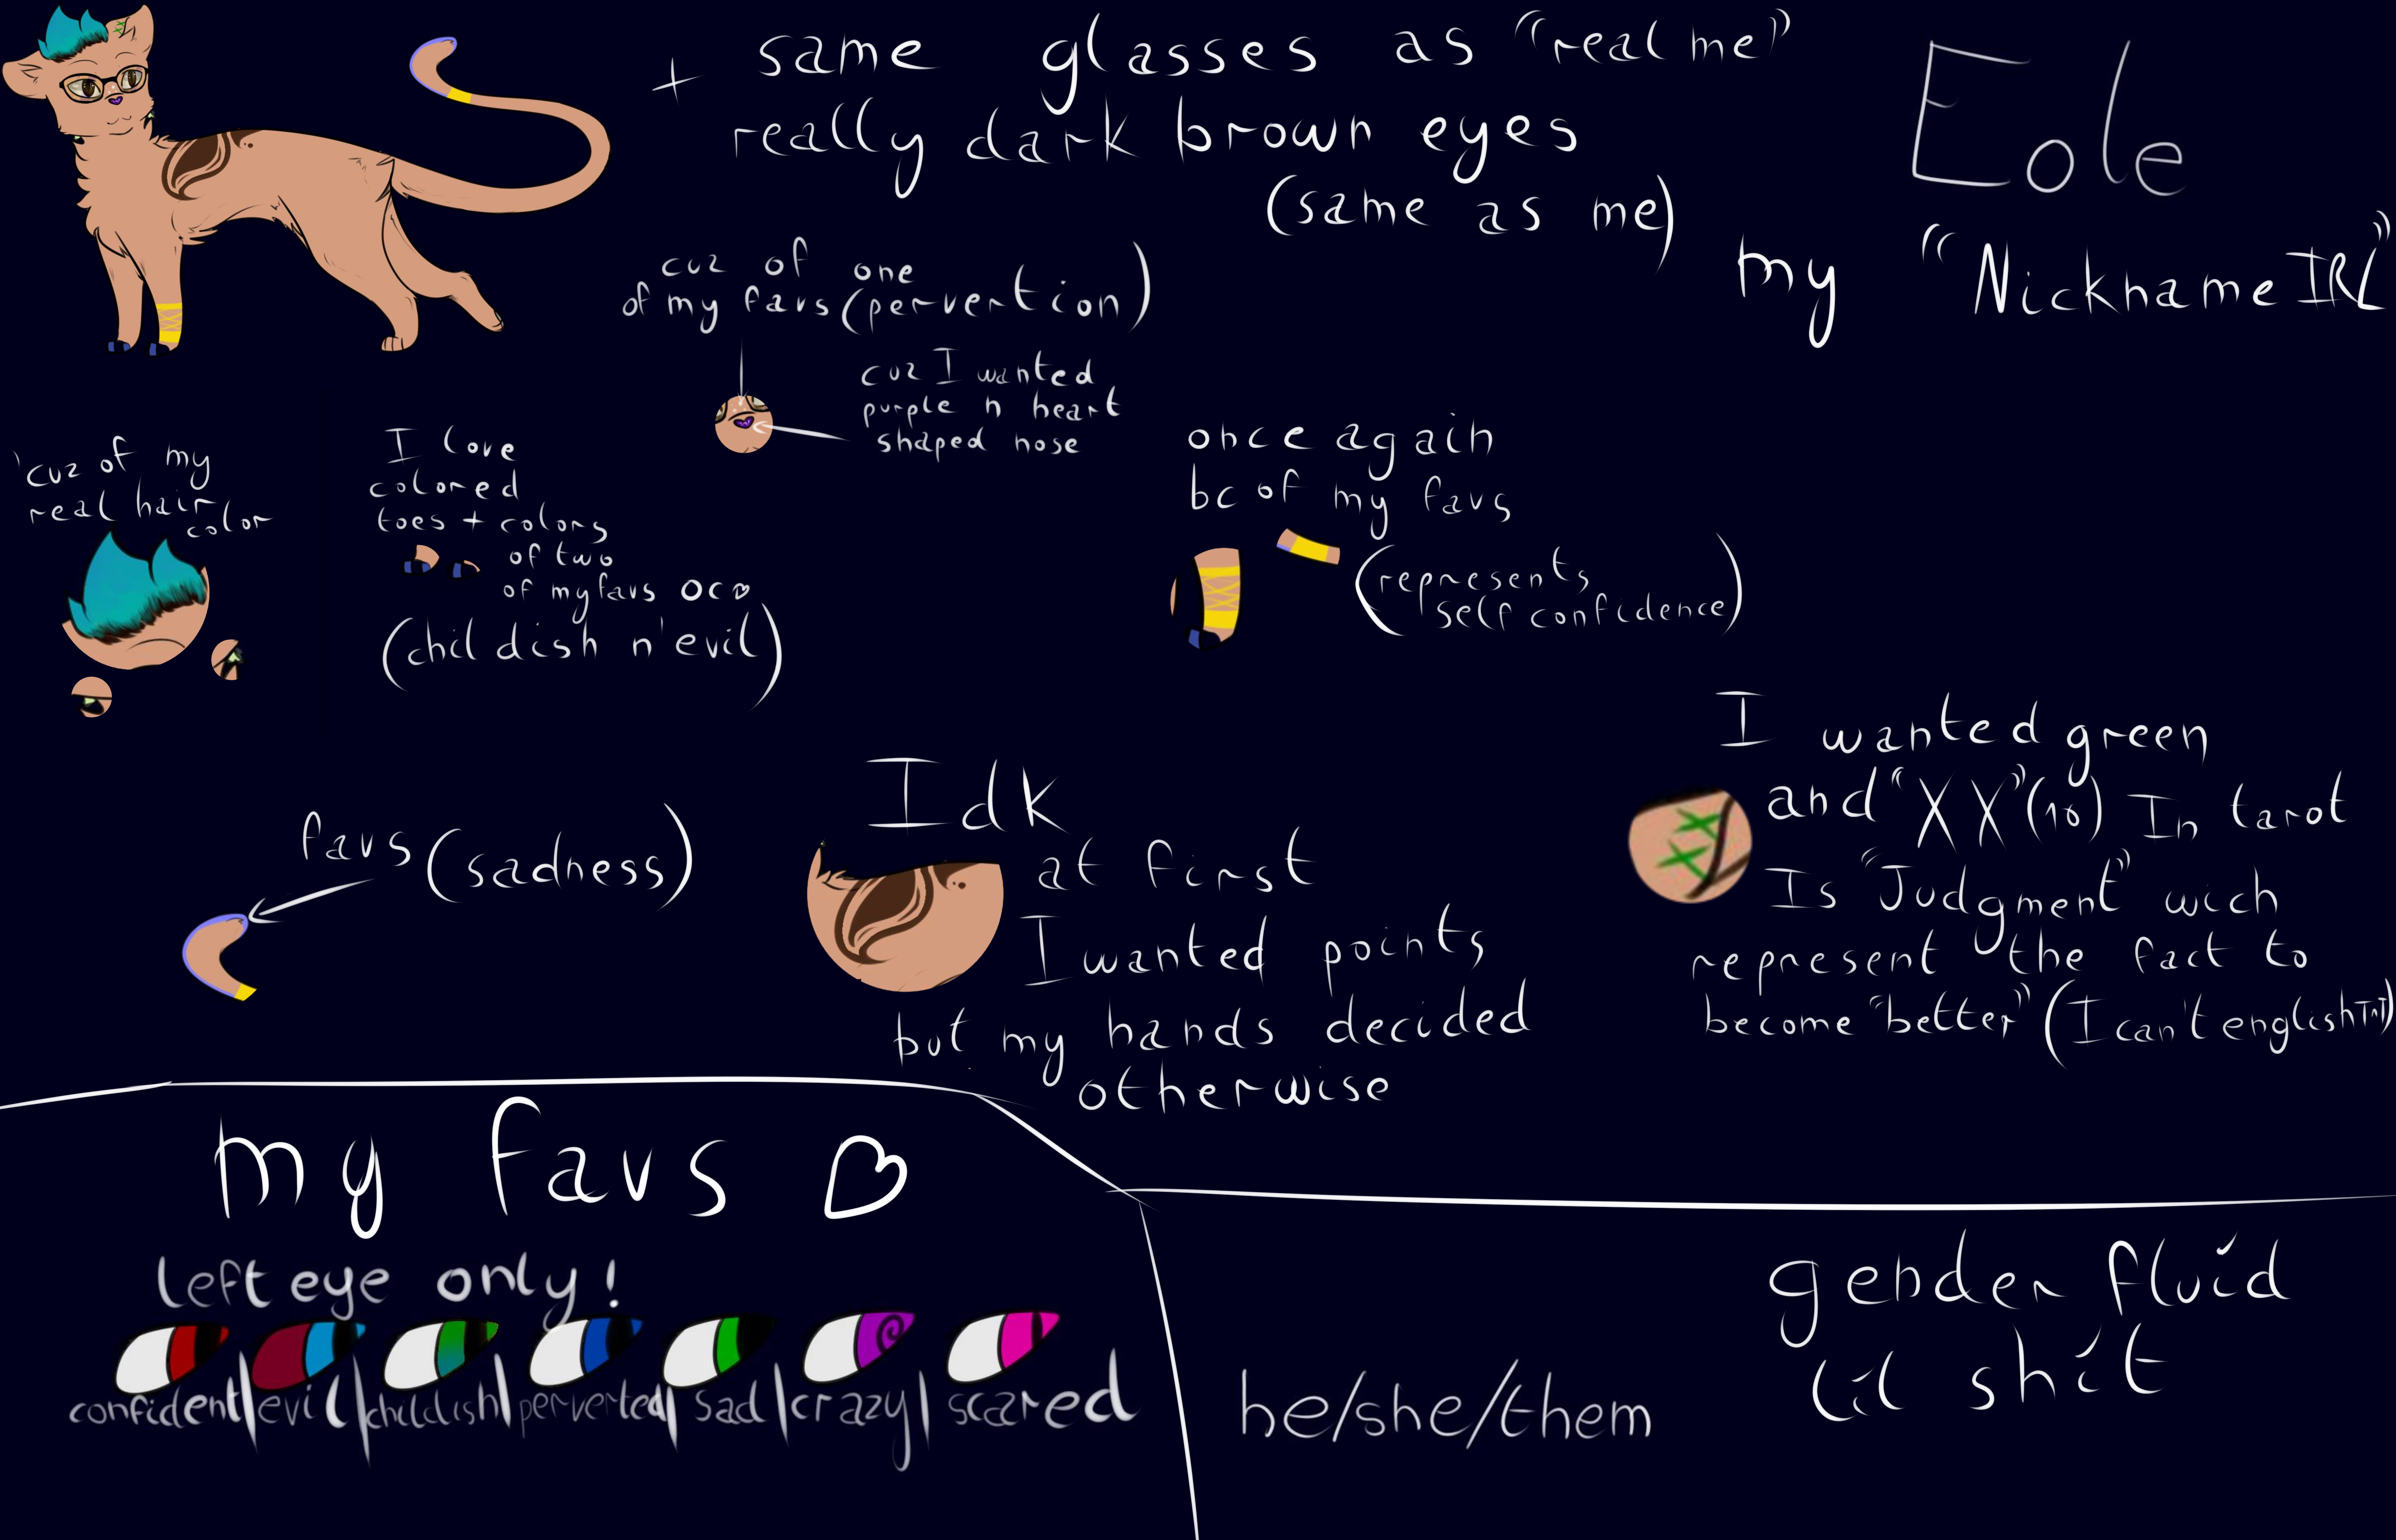 + same glasses as "real me"
really dark brown eyes
(same as me)
Eole
my "Nickname IRL"
cuz of one
of my favs (pervertion)
cuz I wanted
purple n heart
shaped nose
'cuz of my
real hair
color
I love
colored
toes + colors
of two
of my favs OC♡
(childish n'evil)
once again
bc of my favs
(represents
self confidence)
favs (sadness)
Idk
at first
I wanted points
but my hands decided
otherwise
I wanted green
and "XX" (10) In tarot
Is "Judgment" wich
represent the fact to
become "better" (I can't english TnT)
my favs ♡
left eye only!
confident|evil|childish|perverted|sad|crazy|scared
he/she/them
gender fluid
lil shit